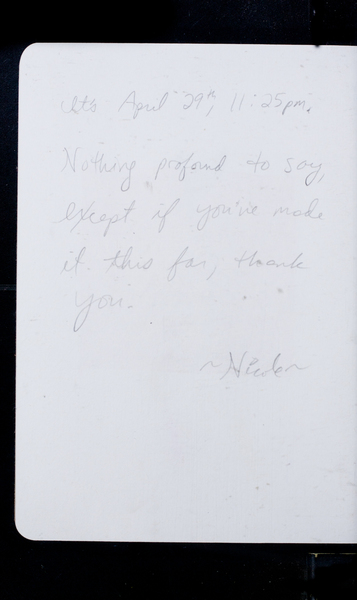 It's April 29th, 11:25pm.
Nothing profound to say,
except if you've made
it this far, thank
you.
~Nicole~